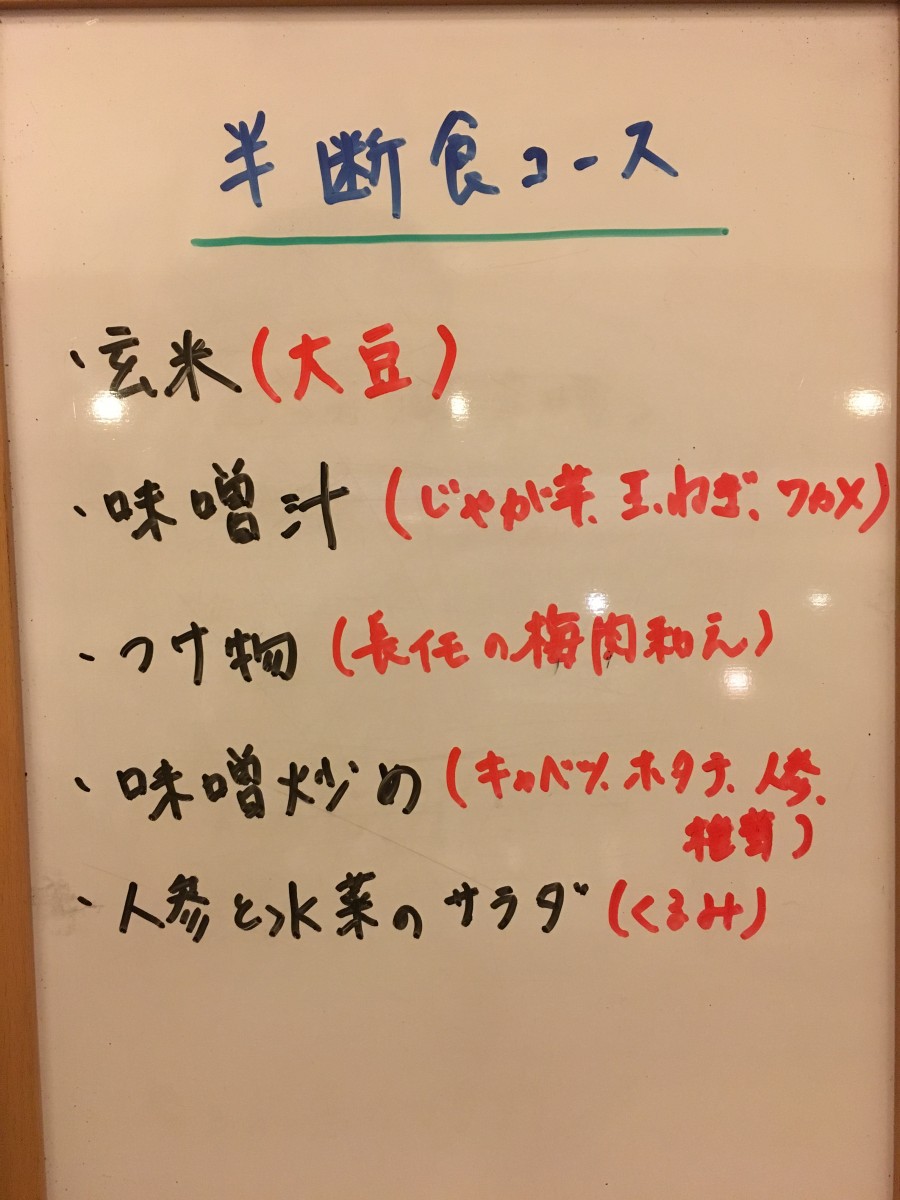 半断食コース
・玄米(大豆)
・味噌汁(じゃが芋、玉ねぎ、ワカメ)
・つけ物(長イモの梅肉和え)
・味噌炒め(キャベツ、ホタテ、人参、
椎茸)
・人参と水菜のサラダ(くるみ)